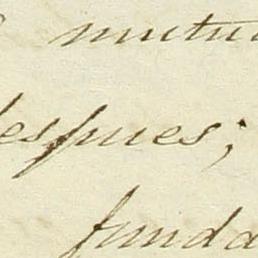 mutu
despues;
funda